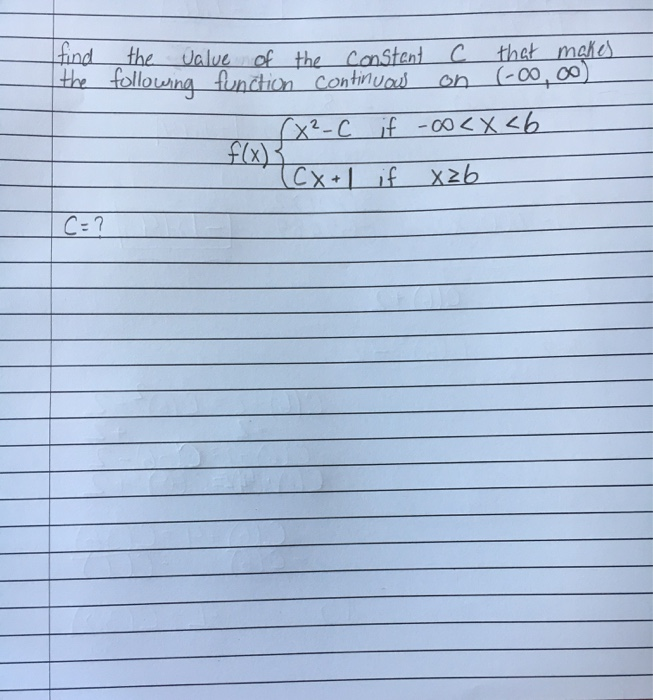 find the value of the constent C that makes
the following function continuous on (-∞, ∞)
f(x) { x²-C if -∞<x<6
Cx+1 if x≥6
C=?